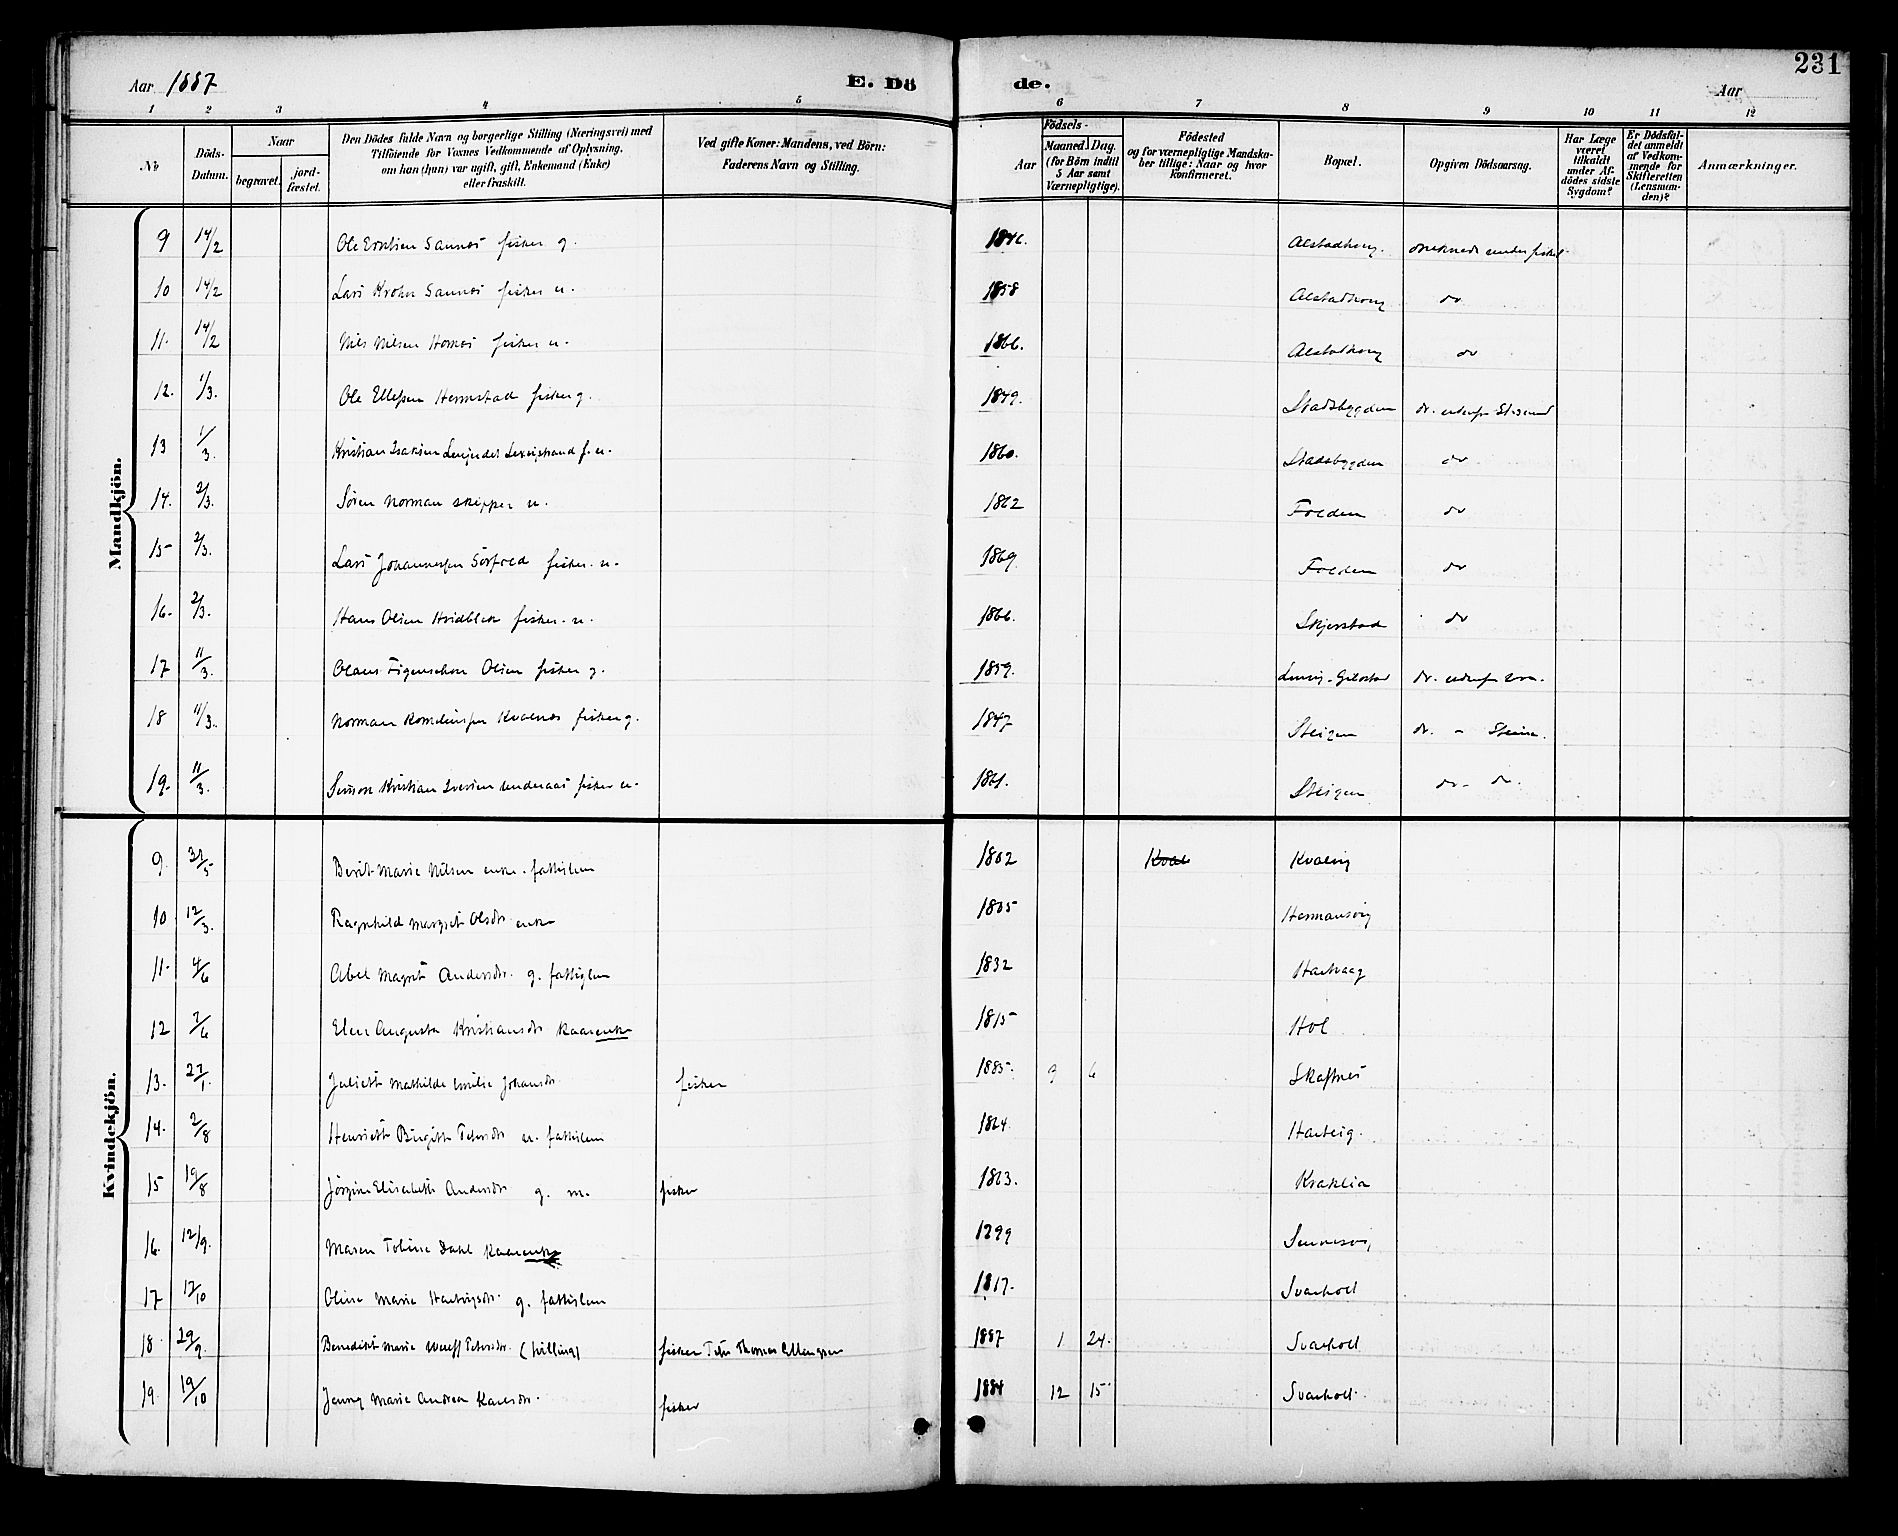 231
Aar 1887 E. Dö de. Aar
1 2 3 4 5 6 7 8 9 10 11 12
No
Döds-Datum.
Naar
begravet.
jord-fæstet.
Den Dödes fulde Navn og borgerlige Stilling (Næringsvei) med
Tilföiende for Voxnes Vedkommende af Oplysning,
om han (hun) var ugift, gift, Enkemand (Enke)
eller fraskilt.
Ved gifte Koner: Mandens, ved Börn:
Faderens Navn og Stilling.
Födsels-
Aar
Maaned Dag.
(for Börn indtil
5 Aar samt
Værnepligtige).
Födested
og for værnepligtige Mandska-
ber tillige: Naar og hvor
konfirmeret.
Bopæl.
Opgiven Dödsaarsag.
Har Læge
været
tilkaldt
under Af-
dödes sidste
Sygdom?
Er Dödsfal-
det anmeldt
af Vedkom-
mende for
Skifteretten
(Lensman-
den)?
Anmærkninger.
Mandkjön.
9 14/2 Ole Sannes fisker g. 1846. Alstadhoug. under fiskeri
10 14/2 Lars Krohn Sannes fisker u. 1858 Alstadhoug do
11. 14/2 Nils Nilsen Hornes fisker u. 1866. Alstadhoug do
12. 1/3. Ole Ellefsen Hermstad fisker g. 1849. Stadsbygden do.
13 1/3. Kristian Isaksen f. u. 1860. Stadsbygden do
14. 2/3. Sören Norman skipper u. 1862 Folden do
15 2/3. Lars Johannessen Sörfold fisker. u. 1869 Folden do
16. 2/3. Hans Olsen Hvidblik fisker. u. 1866. Skjerstad do
17 11/3. Olaus Figenschou Olsen fisker g. 1859. do.
18 11/3. Norman Kvalnes fisker g. 1847 Steigen do. -
19. 11/3. Simon Kristian Iversen fisker u. 1861. Steigen do - do.
Kvindekjön.
9. 31/5 Berit Marie Nilsen enke. fattiglem 1802 Kvalvig
10 12/3. Ragnhild Margret Olsdr. enke 1805 Hermansvig
11. 4/6 Abel Magret Andersdr. g. fattiglem 1832
12 7/6 Elen Augusta Kristiansdr Kaarenke 1815 Hol
13. 27/1. Juliett Mathilde Emilie Johansdr. fisker 1885. 9 6 Skaftnes
14. 2/8 Henriett Birgitte Petersdr u. fattiglem 1864.
15 19/8 Jörgine Elisabeth Andersdr g. m. fisker 1863. Kraklia
16. 12/9. Maren Tobine Dahl Kaarenke 1799
17 17/10 Oline Marie Hartvigsdr. g. fattiglem 1817. Svarholt
18 29/9. Benedikt Marie Wulff Petersdr. (tvilling) fisker Peter Thomas Ellingsen 1887 1 24. Svarholt
19. 19/10 Jenny Marie Andrea Karlsdr. fisker 1884 12 15 Svarholt.